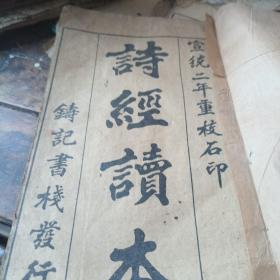 宣統二年重校石印
詩經讀本
鑄記書棧發行